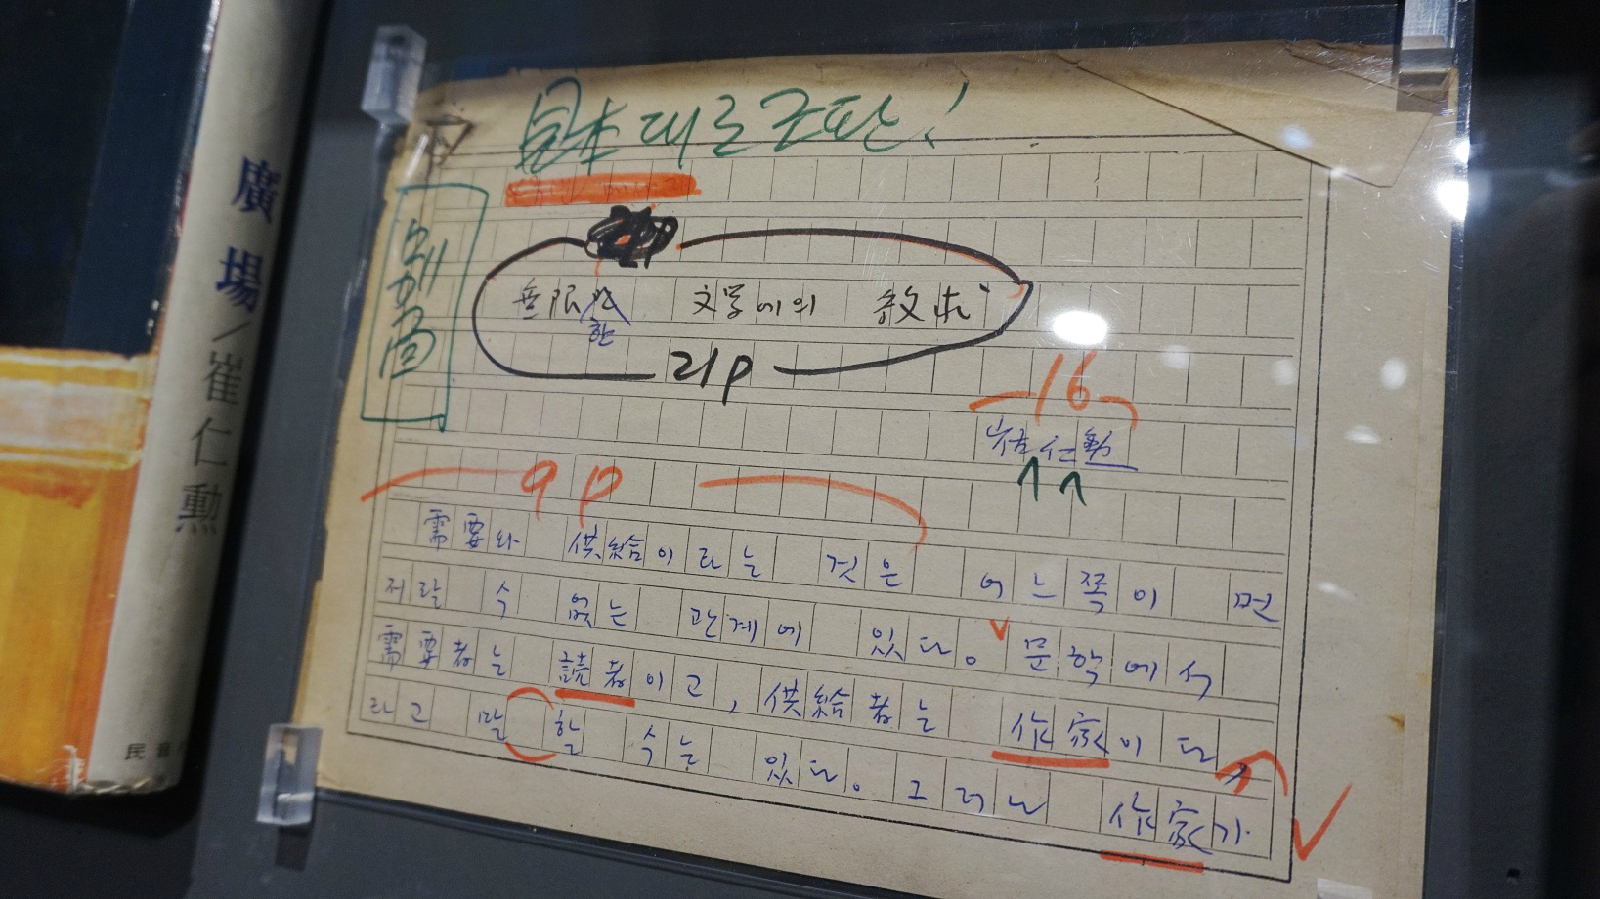 廣場/崔仁勳
民音
見本대로 조판!
別冊
無限한 文学에의 敎本
21P
16
崔仁勳
9P
需要와 供給이라는 것은 어느쪽이 먼
저랄 수 없는 관계에 있다. 문학에서
需要者는 読者이고, 供給者는 作家이다
라고 말할 수는 있다. 그러나 作家가